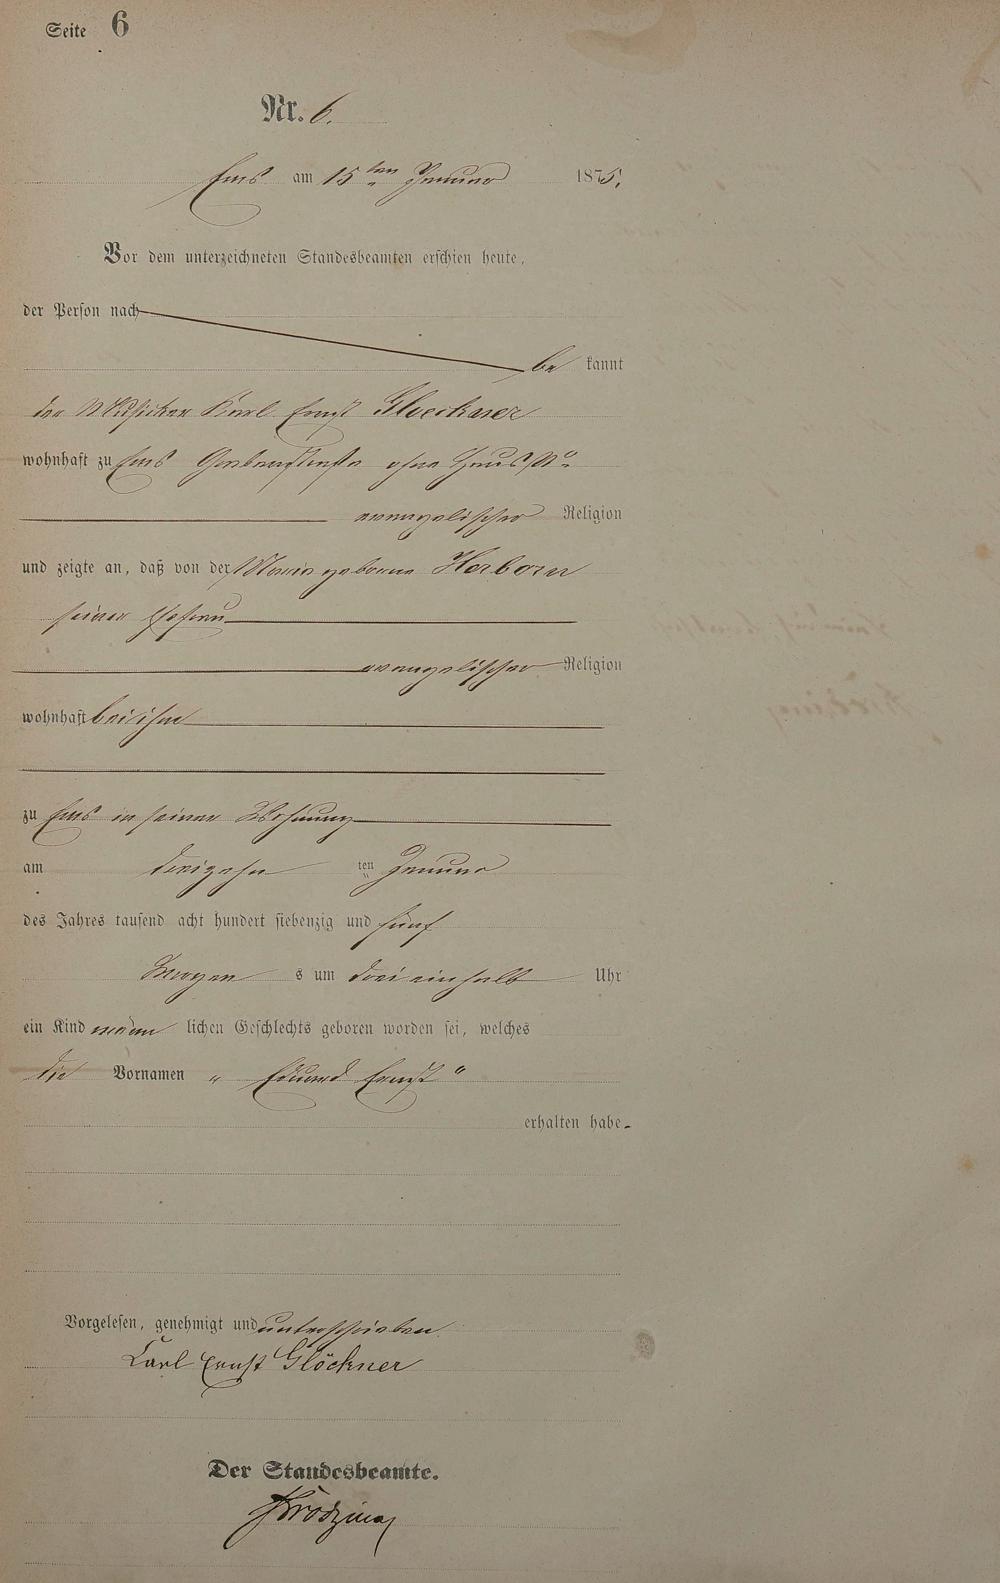 Seite 6
Nr. 6.
Ems am 15ten Januar 1875.
Vor dem unterzeichneten Standesbeamten erschien heute,
der Person nach
be kannt
der Musiker Karl Ernst Gloeckner
wohnhaft zu Ems Grabenstraße ohne Haus No
evangelischer Religion
und zeigte an, daß von der Maria geborne Herborn
seiner Ehefrau
evangelischer Religion
wohnhaft bei ihm
zu Ems in seiner Wohnung
am dreizehn ten Januar
des Jahres tausend acht hundert siebenzig und fünf
Morgen s um drei einhalb Uhr
ein Kind männ lichen Geschlechts geboren worden sei, welches
die Vornamen „ Eduard Ernst "
erhalten habe.
Vorgelesen, genehmigt und unterschrieben
Carl Ernst Glöckner
Der Standesbeamte.